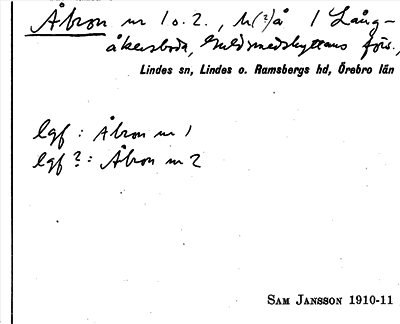 Åbron nr 1 o. 2., h(?)å i Lång-
åkersboda, Guldsmedshyttans förs.,
Lindes sn, Lindes o. Ramsbergs hd, Örebro län
lgf : Åbron nr 1
lgf ? : Åbron nr 2
SAM JANSSON 1910-11